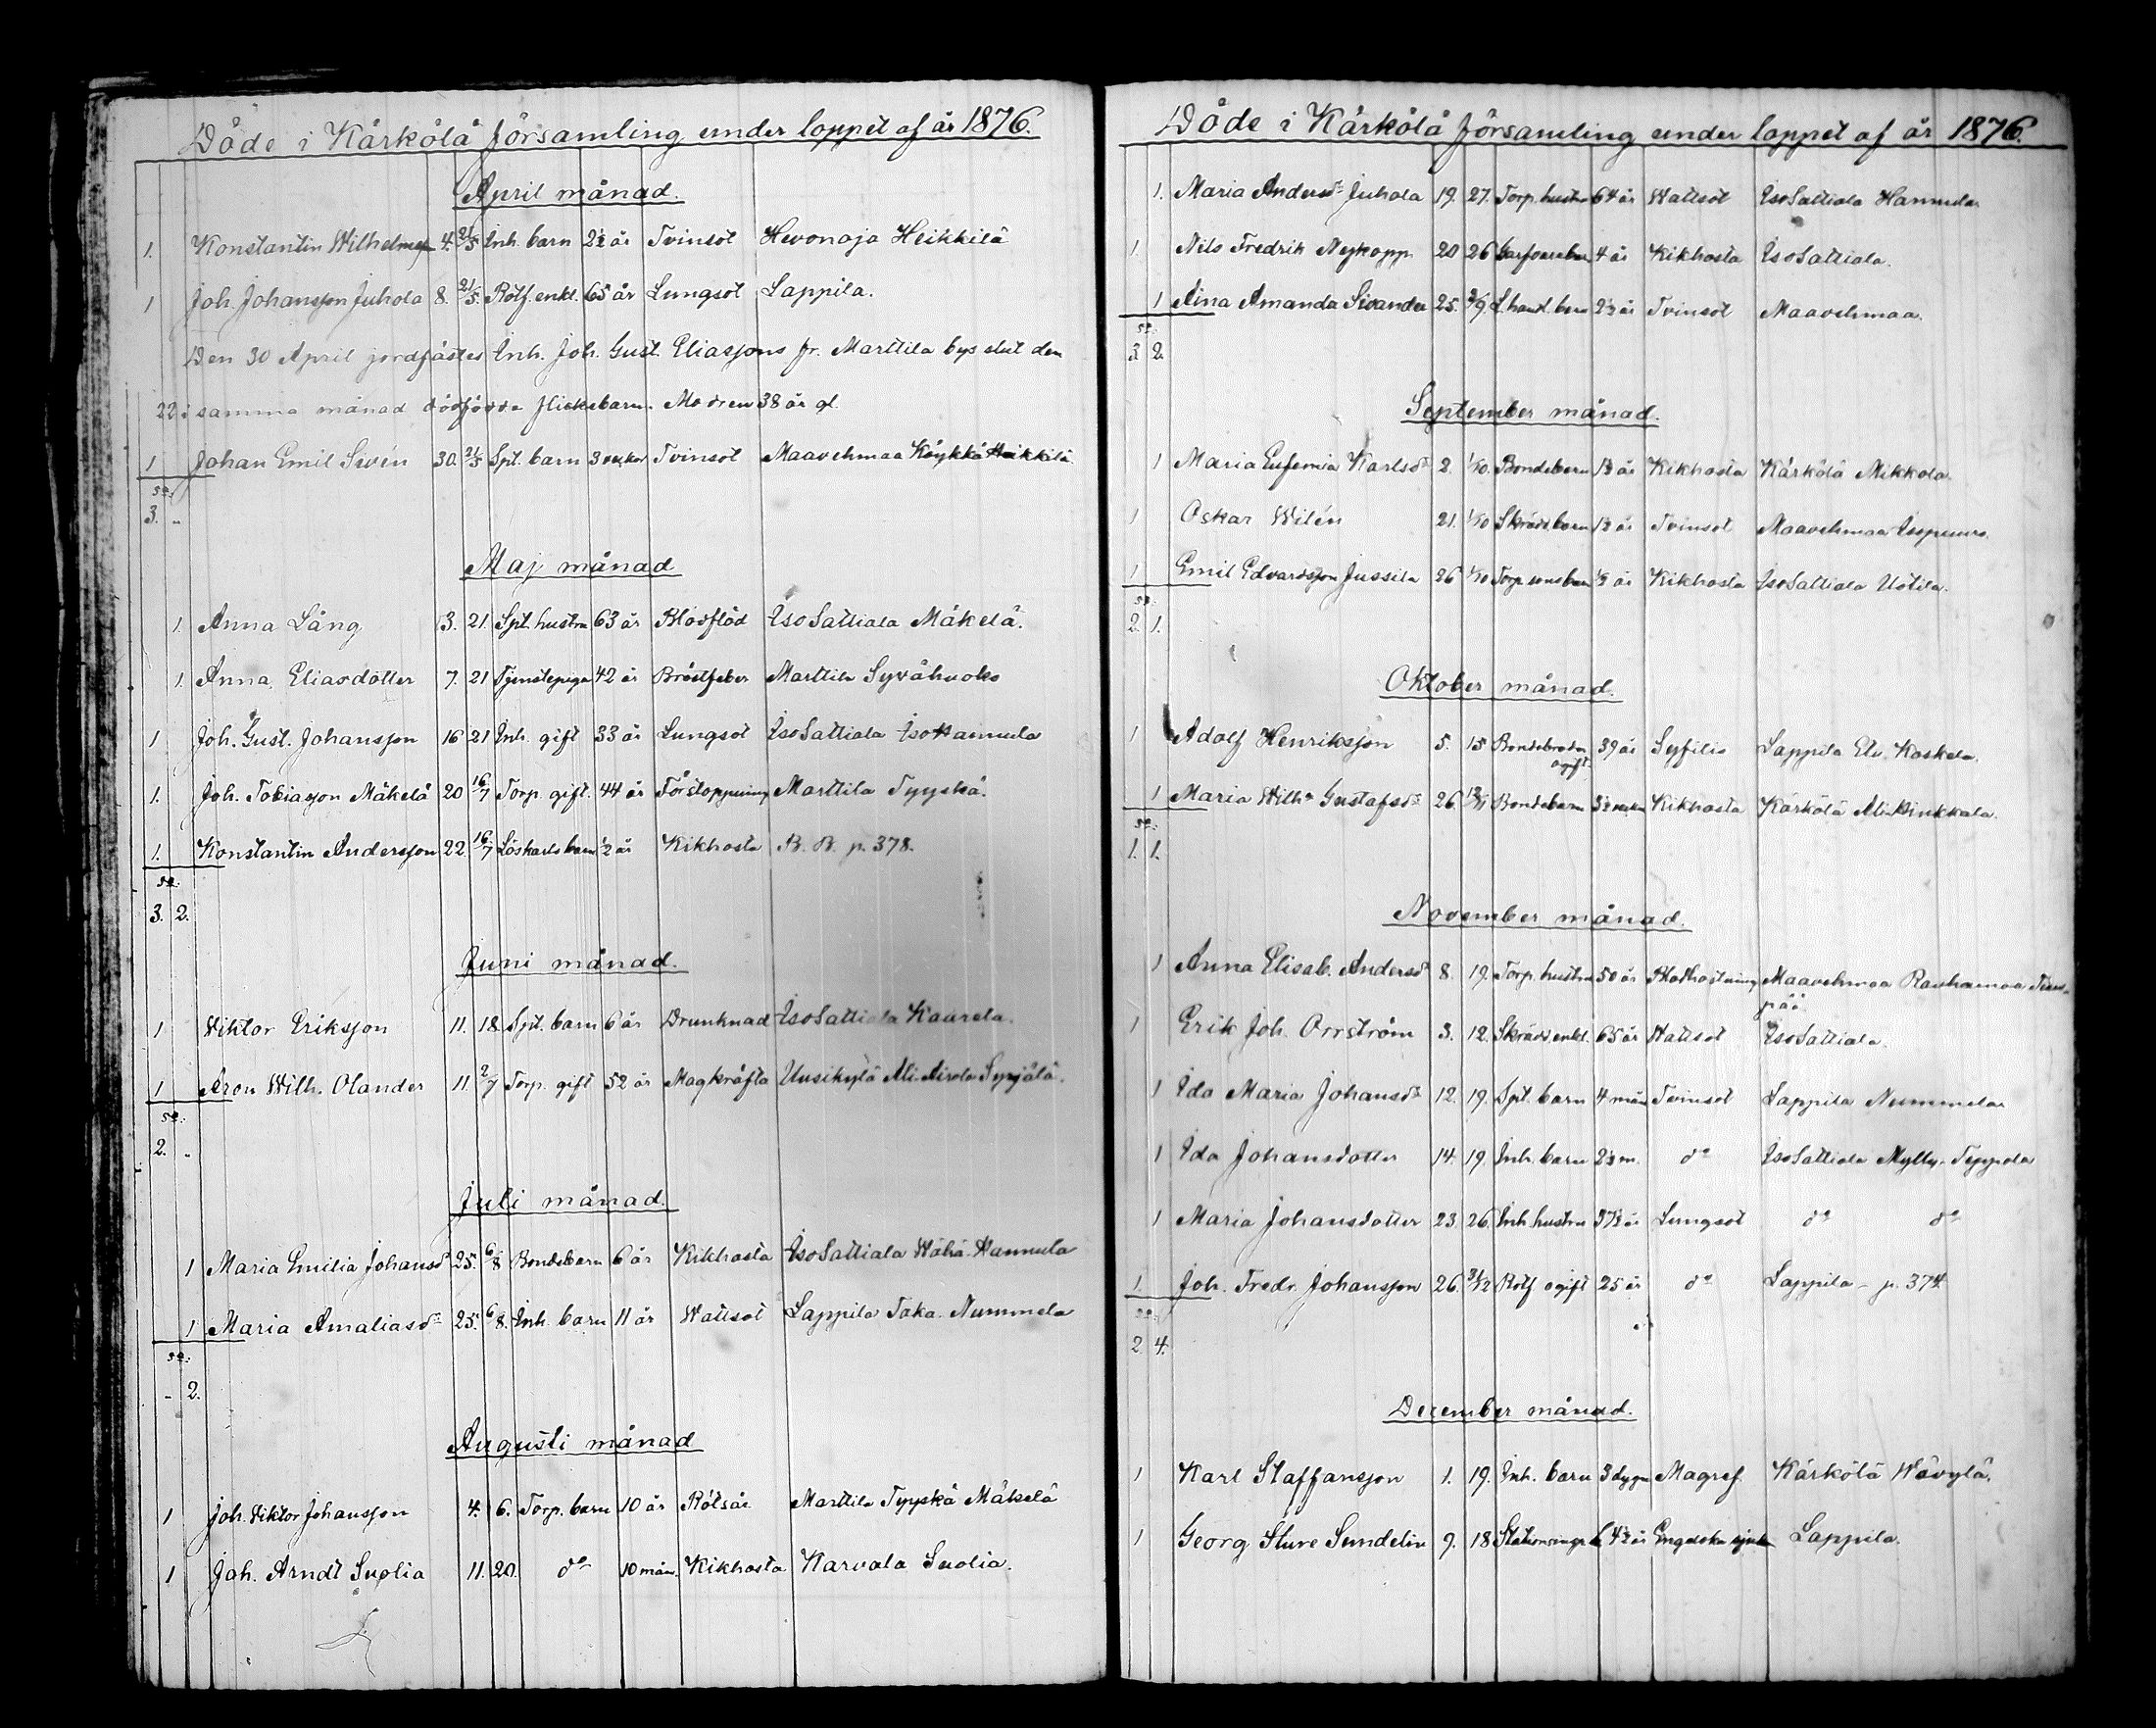 Döde i Kärkölä församling under loppet af år 1876.
April månad.
1. Konstantin Wilhelmsson 4. 21/5 Inh. barn 2½ år Tvinsot Hevonoja Heikkilä
1 Joh. Johansson Juhola 8. 21/5. Rotf. enkl. 65 år Lungsot Lappila.
Den 30 April jordfästes Inh. Joh. Gust. Eliassons fr. Marttila bys slut den
22: samma månad dödfödda flickebarn. Modren 38 år gl.
1 Johan Emil Sivén 30. 21/5 Spt. barn 3 veckor Tvinsot Maavehmaa Köykkä Heikkilä
Sa:
3. "
Maj månad
1. Anna Lång 3. 21. Spt. hustru 63 år Blodflöd IsoSattiala Mäkelä.
1. Anna Eliasdotter 7. 21 Tjenstepiga 42 år Bröstfeber Marttila Syvähuoko
1 Joh. Gust. Johansson 16 21 Inh. gift 33 år Lungsot IsoSattiala IsoHannula
1. Joh. Tobiasson Mäkelä 20 16/7 Torp. gift. 44 år Förstoppning Marttila Tyyskä.
1. Konstantin Andersson 22 16/7 Löskarls barn ½ år Kikhosta B. B. p. 378.
Sa:
3. 2.
Juni månad.
1 Viktor Eriksson 11. 18. Spt. barn 6 år Drunknad IsoSattiala Kaurela.
1 Aron Wilh. Olander 11. 2/7 Torp. gift 52 år Magkräfta Uusikylä Ali-Airola Syrjälä.
Sa:
2. "
Juli månad.
1 Maria Emilia Johansdr 25. 6/8 Bondebarn 6 år Kikhosta IsoSattiala Wähä-Hannula
1 Maria Amaliasdr 25. 6/8. Inh. barn 11 år Wattsot Lappila Taka-Nummela
Sa:
- 2.
Augusti månad
1 Joh. Viktor Johansson 4. 6. Torp. barn 10 år Rötsår Marttila Tyyskä Mäkelä
1 Joh. Arndt Suolia 11. 20. do 10 mån. Kikhosta Karvala Suolia.
Döde i Kärkölä församling under loppet af år 1876.
1. Maria Andersdr Juhola 19. 27. Torp. hustru 64 år Wattsot IsoSattiala Hannula
1. Nils Fredrik Nykopp 20 26 4 år Kikhosta IsoSattiala.
1 Aina Amanda Sivander 25. 3/9. L.handl. barn 2½ år Tvinsot Maavehmaa.
Sa:
3. 2.
September månad.
1 Maria Eufemia Karlsdr 2. 1/10. Bondebarn 1½ år Kikhosta Kärkölä Mikkola.
1 Oskar Wilén 21. 1/10 Skrädd. barn 1½ år Tvinsot Maavehmaa
1 Emil Edvardsson Jussila 26 1/10 Torp. sons barn ½ år Kikhosta IsoSattiala Uotila.
Sa:
2. 1.
Oktober månad.
1 Adolf Henriksson 5. 15 Bondebroder 39 år Syfilis Lappila Koskela.
ogift.
1 Maria Wilhna Gustafsdr 26. 12/11 Bondebarn 3½ veckor Kikhosta Kärkölä Ali-Hinkkala.
Sa:
1. 1.
November månad.
1 Anna Elisab. Andersdr 8. 19. Torp. hustru 50 år Blodhostning Maavehmaa Rauhamaa
pää.
1 Erik Joh. Orrström 3. 12. Skrädd. enkl. 65 år Wattsot IsoSattiala.
1 Ida Maria Johansdr 12. 19. Spt. barn 4 mån Tvinsot Lappila Nummela
1 Ida Johansdotter 14. 19. Inh. barn 2½ m. do IsoSattiala Mylly-Seppola
1 Maria Johansdotter 23. 26. Inh. hustru 37½ år Lungsot do do
1. Joh. Fredr. Johansson 26. 31/12 Rotf. ogift 25 år do Lappila - p. 374.
Sa:
2 4.
December månad.
1 Karl Staffansson 1. 19. Inh. barn 3 dygn Magref Kärkölä Wävylä.
1 Georg Sture Sundelin 9. 18 4½ år Engelska sjukan Lappila.